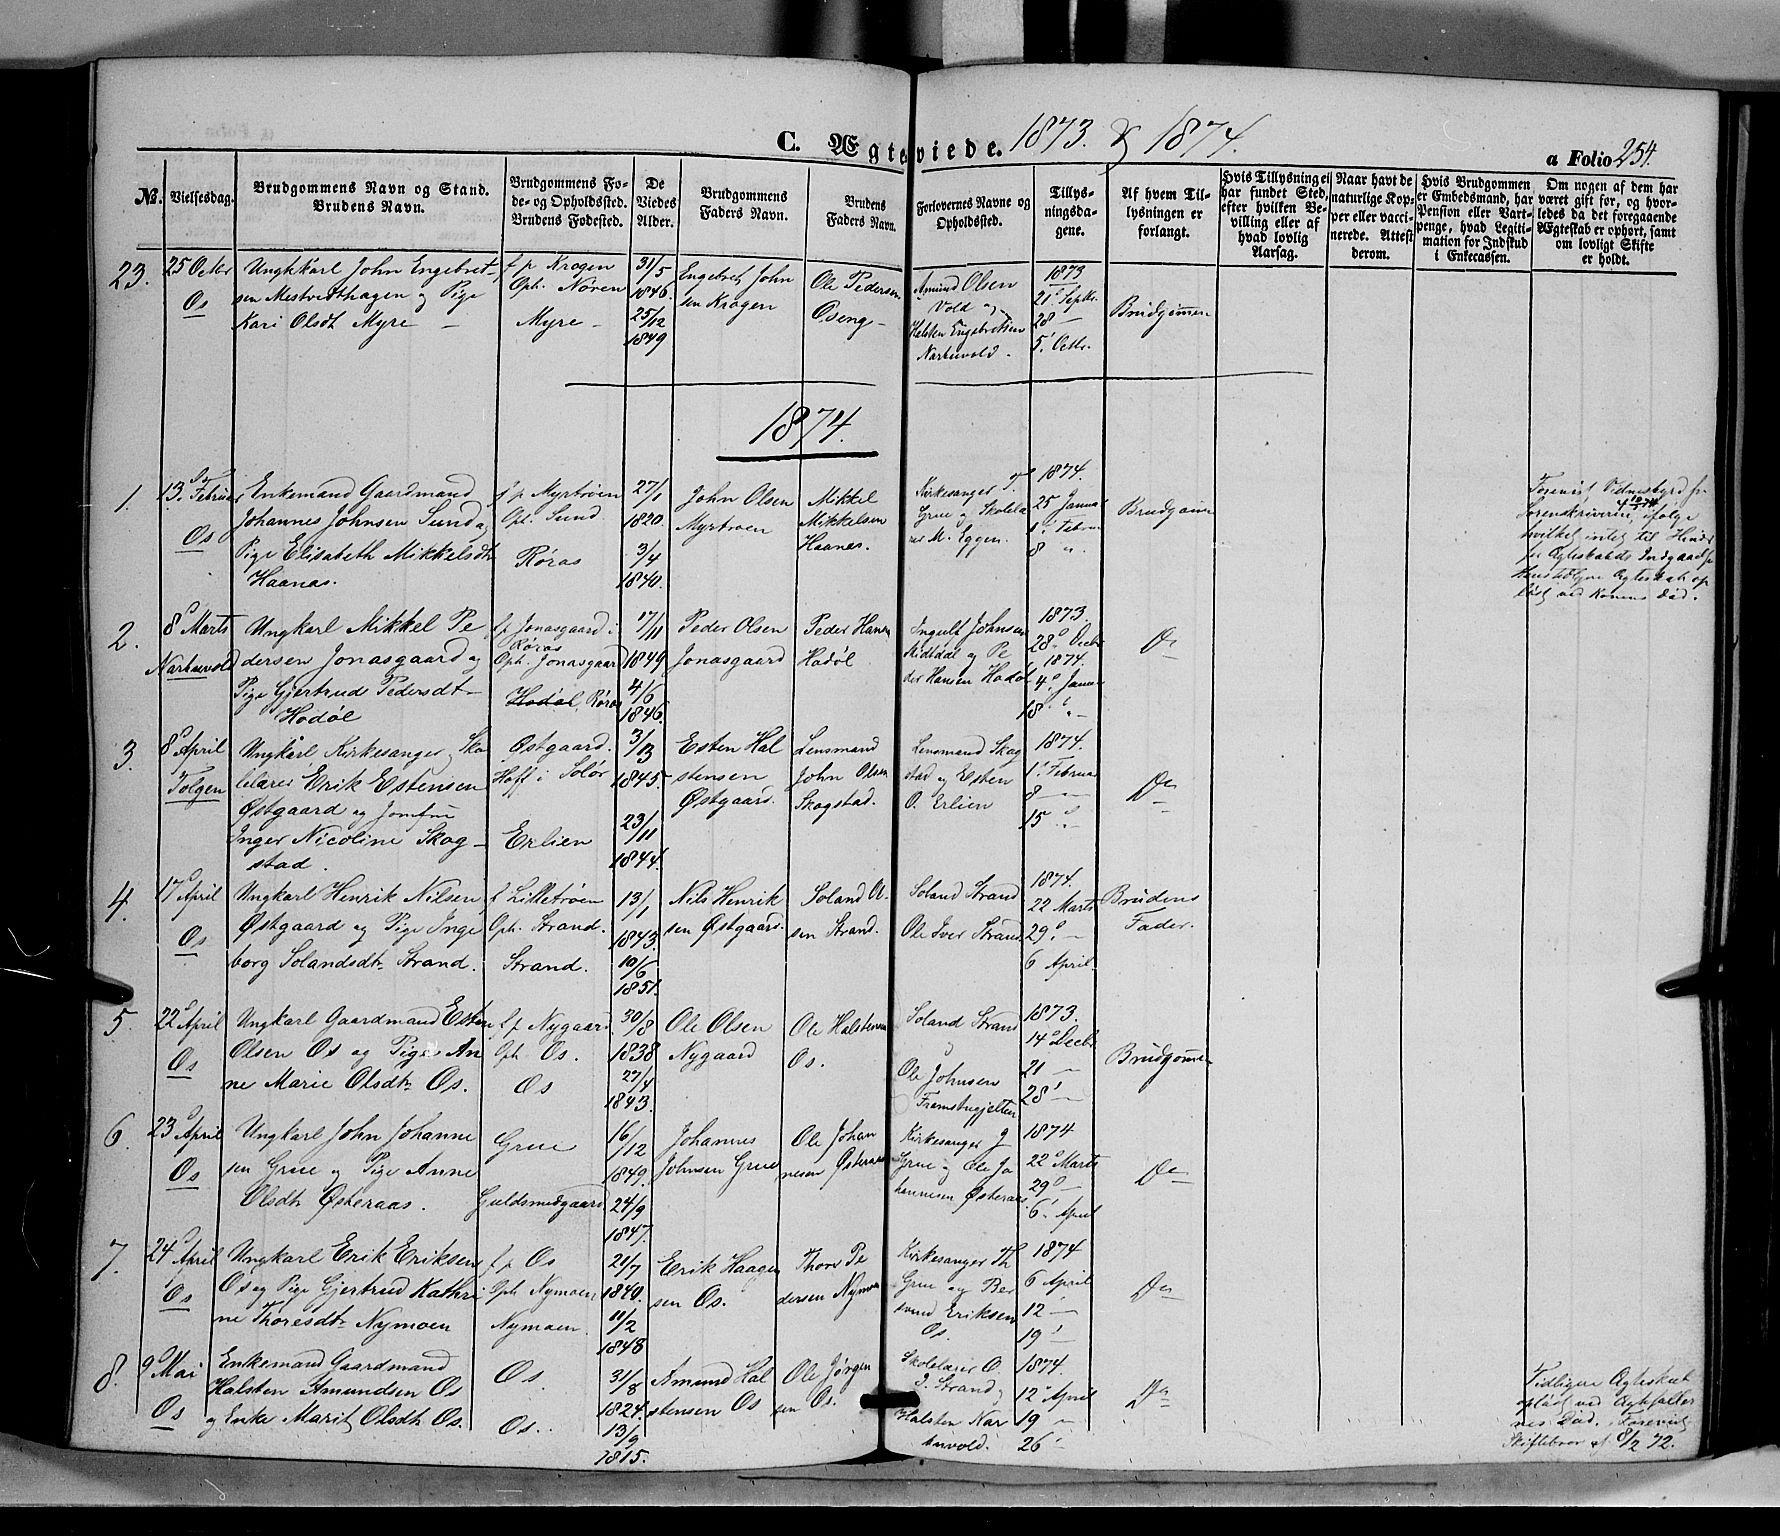 C. Ægteviede. 1873. & 1874.
a Folio 254.
No.
Vielsesdag.
Brudgommens Navn og Stand.
Brudens Navn.
Brudgommens Fø-
de- og Opholdssted.
Brudens Fødested.
De
Viedes
Alder.
Brudgommens
Faders Navn.
Brudens
Faders Navn.
Forlovernes Navne og
Opholdssted.
Tillys-
ningsda-
gene.
Af hvem Til-
lysningen er
forlangt.
Hvis Tillysning ei
har fundet Sted,
efter hvilken Be-
villing eller af
hvad lovlig
Aarsag.
Naar havt de
naturlige Kop-
per eller vacci-
nerede. Attest
derom.
Hvis Brudgommen
er Embedsmand, har
Pension eller Vart-
penge, hvad Legiti-
mation for Indskud
i Enkecassen.
Om nogen af dem har
været gift før, og hvor-
ledes da det foregaaende
Ægteskab er ophørt, samt
om lovligt Skifte
er holdt.
23.
25 Octbr
Os
Ungkarl John Engebret-
sen Mestvedthagen og Pige
Kari Olsdt Myre -
f p Krogen
Oph. Nøren
Myre -
31/5
1846.
25/12
1849
Engebret John
sen Krogen
Ole Pedersen
Oseng -
Amund Olsen
Vold og
Halsten Engebretsen
Narbuvold.
1873
21 Septbr.
28 -
5. Octbr.
Brudgommen
1874.
1.
13. Februar
Os
Enkemand Gaardmand
Johannes Johnsen Sund og
Pige Elisabeth Mikkelsdtr
Haanæs.
f p Myrtrøen
Oph. Sund.
Røras
27/1
1820.
3/4
1840.
John Olsen
Myrtroen
Mikkel
Mikkelsen
Haanes.
Kirkesanger T.
Grue og Skolelæ
rer M. Eggen.
1874.
25 Januar
1. Februar
8 "
Brudgom
Forevist Vidnesbyrd fra
Sorenskriveren, ifølge
hvilket intet til Hinder
for Ægteskabs Indgaaelse
Ægteskab op
løst ved Konens Død.
2.
8 Marts
Narbuvold
Ungkarl Mikkel Pe
dersen Jonasgaard og
Pige Gjertrud Pedersdt
Hodøl
f p Jonasgaard i
Røras
Oph. Jonasgaard
Hodøl, Røras
17/11
1849
4/6
1846.
Peder Olsen
Jonasgaard
Peder Hansen
Hodøl
Ingult Johnsen
Midtdal og Pe
der Hansen Hodøl
1873
28 Decbr
1874.
4. Januar
18 " -
Do
3.
8 April
Tolgen
Ungkarl, Kirkesanger, Sko
lelærer Erik Estensen
Østgaard og Jomfru
Inger Nicoline Skog-
stad.
Østgaard.
Hoff i Solør
Erlien
3/13
1845.
23/11
1844.
Esten Hal
stensen
Østgaard.
Lensmand
John Olsen
Skogstad.
Lensmand Skog
stad og Esten
O. Erlien
1874.
1. Februar
8 -
15 "
Do
4.
17 April
Os
Ungkarl Henrik Nilsen
Østgaard og Pige Inge
borg Solandsdtr Strand.
f Lilletrøen
Oph. Strand.
Strand.
13/1
1843.
10/6
1851.
Nils Henrik
sen Østgaard.
Soland Ol-
sen Strand.
Soland Strand
Ole Iver Strand
1874.
22 Marts
29 -
6 April.
Brudens
Fader.
5.
22 April
Os
Ungkarl Gaardmand Esten
Olsen Os og Pige An
ne Marie Olsdtr Os.
f p Nygaard
Oph. Os.
Os
30/8
1838
27/4
1843.
Ole Olsen
Nygaard
Ole Halstensen
Os.
Soland Strand
Ole Johnsen
1873.
14 Decbr
21 -
28 -
Brudgommen
6.
23 April
Os
Ungkarl John Johanne
sen Grue og Pige Anne
Olsdtr Østeraas.
Grue
Guldsmedgaard
16/12
1849.
24/9
1847.
Johannes
Johnsen Grue
Ole Johan
nesen Østeraas
Kirkesanger J
Grue og Ole Jo
hannesen Østeraas
1874
22 Marts
29 -
6. April
Do
7.
24 April
Os
Ungkarl Erik Eriksen
Os og Pige Gjertrud Kathri
ne Thoresdtr Nymoen
f p Os
Oph Nymoen
Nymoen.
21/7
1849.
11/2
1848
Erik Haagen
sen Os.
Thore Pe
dersen Nymoen
Kirkesanger Th
Grue og Ber
svend Eriksen
Os.
1874
6 April
12 -
19 -
Do
8.
9 Mai
Os
Enkemand Gaardmand
Halsten Amundsen Os
og Enke Marit Olsdtr Os.
Os.
Os.
31/8
1824.
13/9
1815.
Amund Hal
stensen Os
Ole Jørgen
sen Os.
Skolelærer O.
J. Strand,
Halsten Nar
buvold.
1874.
12 April
19 -
26 -
Do
Tidligere Ægteskab
opløst ved Ægtefæller
nes Død. Forevist
Skiftebrev af 8/2 72.